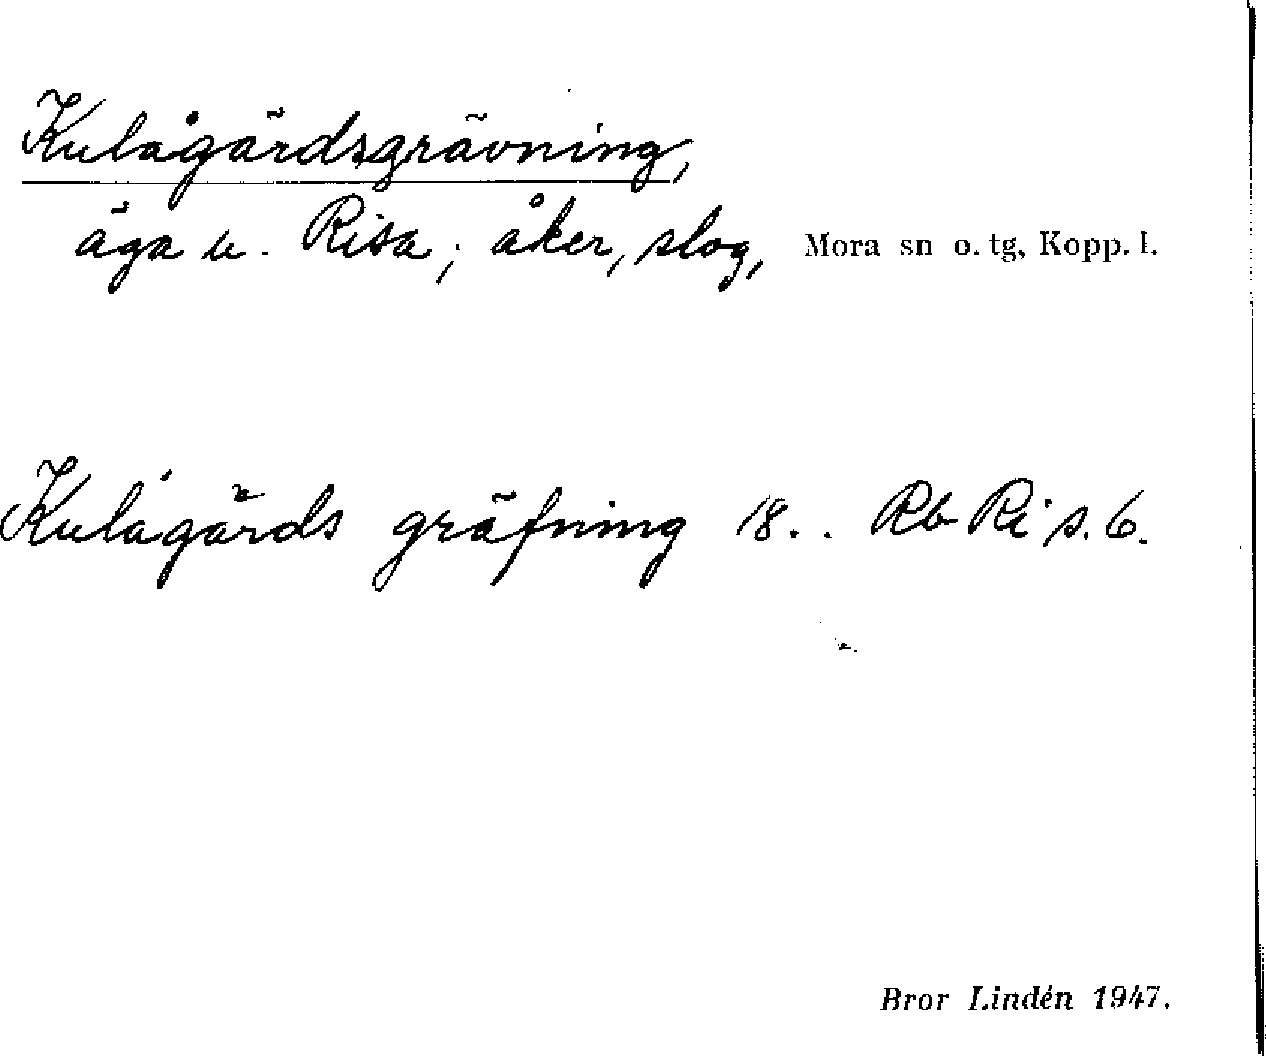 Kulågärdsgrävning,
äga u. Risa; åker, slog, Mora sn o. tg, Kopp. l.
Kulågärds gräfning 18.. Rb Ri s. 6.
Bror Lindén 1947.